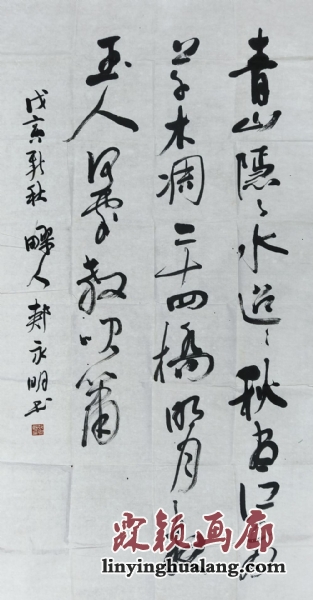 青山隱〻水迢〻秋尽江南
草木凋二十四橋明月夜
玉人何處教吹簫
戊寅新秋 疁人 郟永明书
霖颖画廊
linyinghualang.com